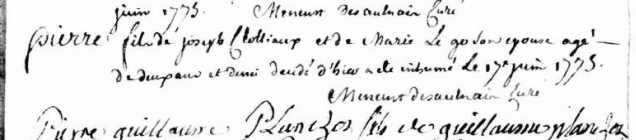 juin 1773. Meneust desaulnair Curé
pierre fils de joseph et de Marie Le go son epouse agé
de deux ans et demi decedé d'hier a ete inhumé Le 17e juin 1773.
Meneust desaulnair Curé
Pierre guillaume fils de guillaume